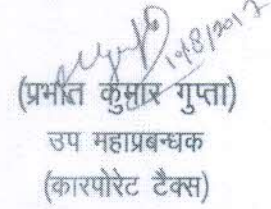 19/8/2017
(प्रभात कुमार गुप्ता)
उप महाप्रबन्धक
(कारपोरेट टैक्स)